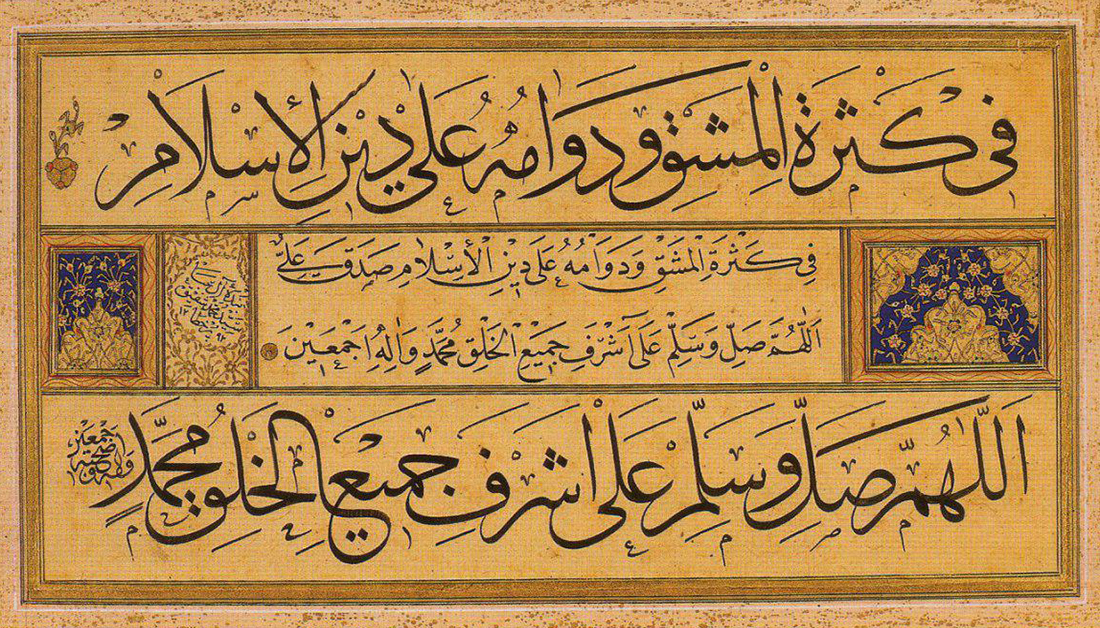 في كَثْرَةِ المَشْقِ وَدَوَامُهُ عَلَى دِينِ الإِسْلَامِ
في كَثْرَةِ المَشْقِ وَدَوَامُهُ عَلَى دِينِ الأِسْلَامِ صَدَقَ عَلِيٌّ
اَللّٰهُمَّ صَلِّ وَسَلِّمْ عَلَى أَشْرَفِ جَمِيعِ الخَلْقِ مُحَمَّدٍ وَاٰلِهِ اَجْمَعِينَ
اَللّٰهُمَّ صَلِّ وَسَلِّمْ عَلَى اشْرَفِ جَمِيعِ الخَلْقِ مُحَمَّدٍ